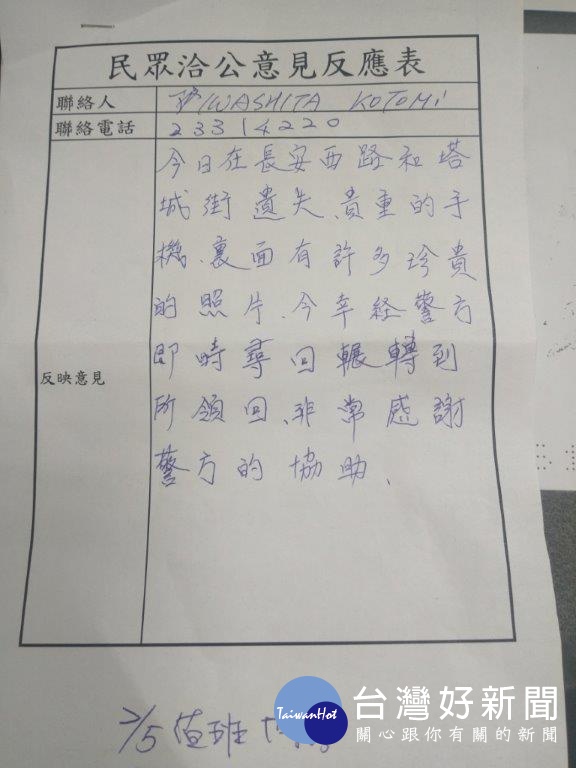 民眾洽公意見反應表
聯絡人 IWASHITA KOTOMi
聯絡電話 23314220
反映意見
今日在長安西路和塔
城街遺失、貴重的手
機、裏面有許多珍貴
的照片、今幸経警方
即時尋回輾轉到
所領回、非常感謝
警方的協助、
2/5值班
TaiwanHot
台灣好新聞
關心跟你有關的新聞